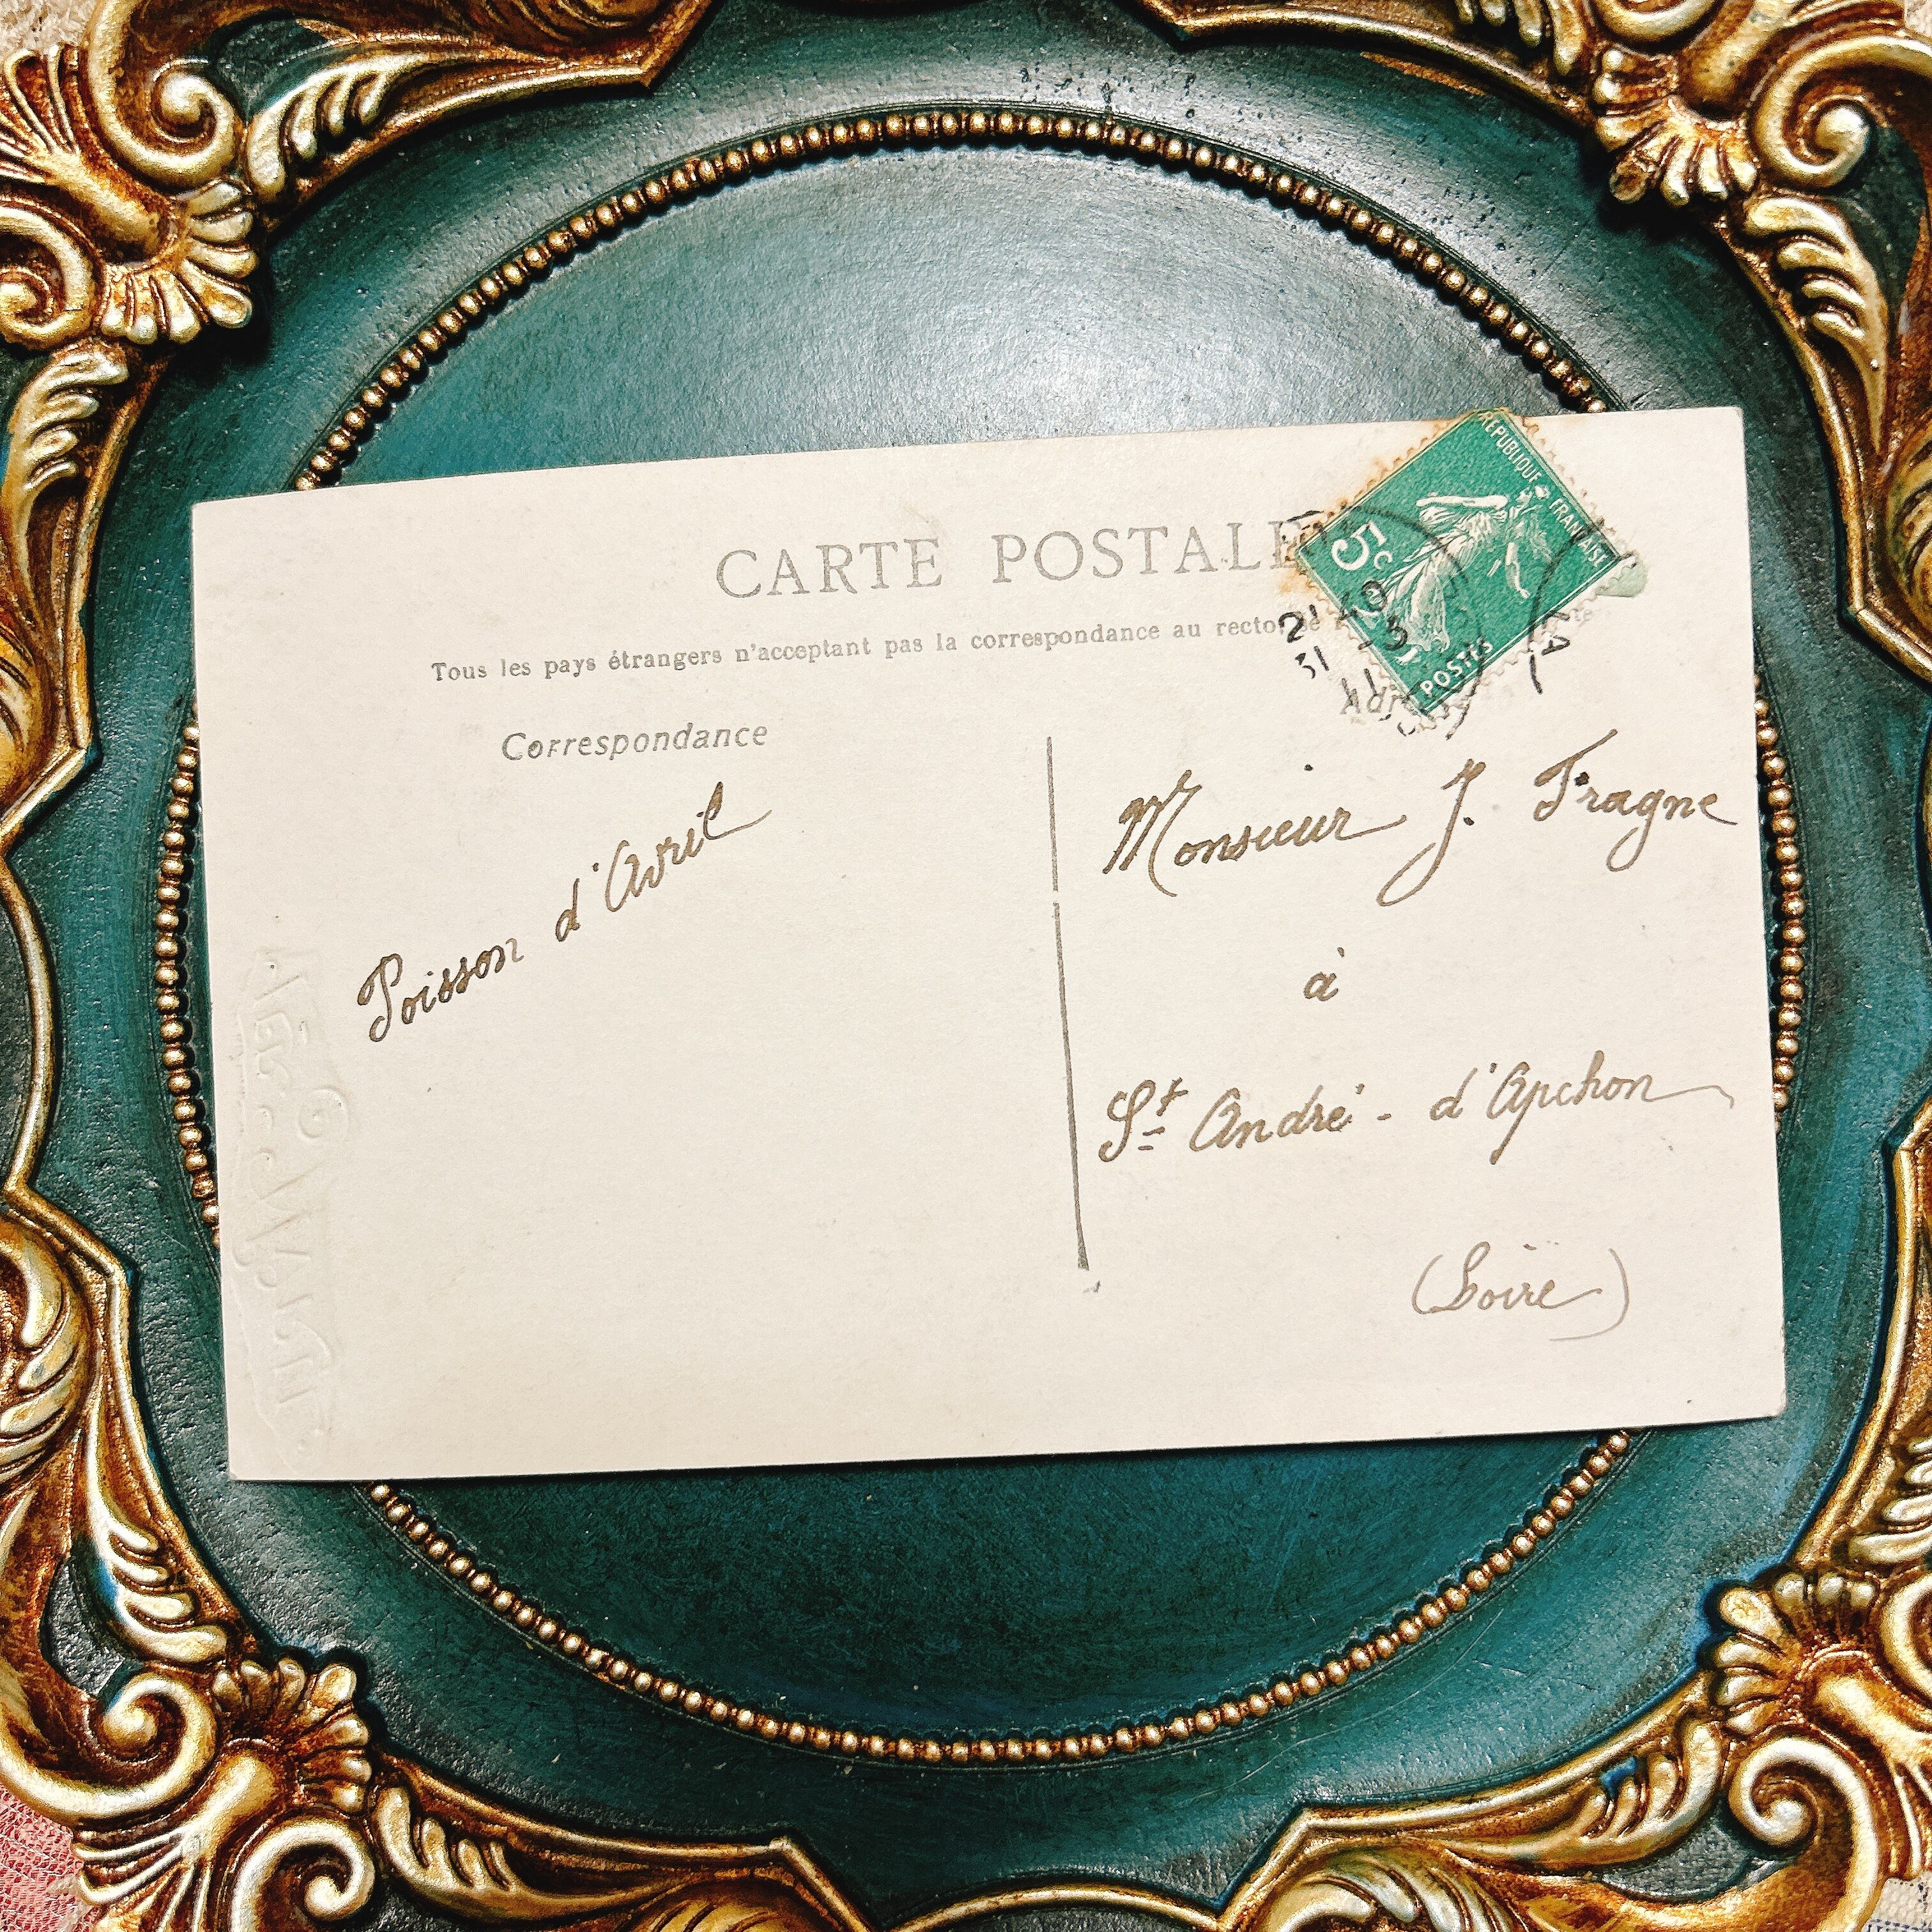 CARTE POSTALE
Tous les pays étrangers n'acceptant pas la correspondance au recto, se
RÉPUBLIQUE FRANÇAISE
5c
POSTES
21 40
31 3
Correspondance
Poisson d'Avril
Monsieur J. Fragne
à
St André-d'Apchon
(Loire)